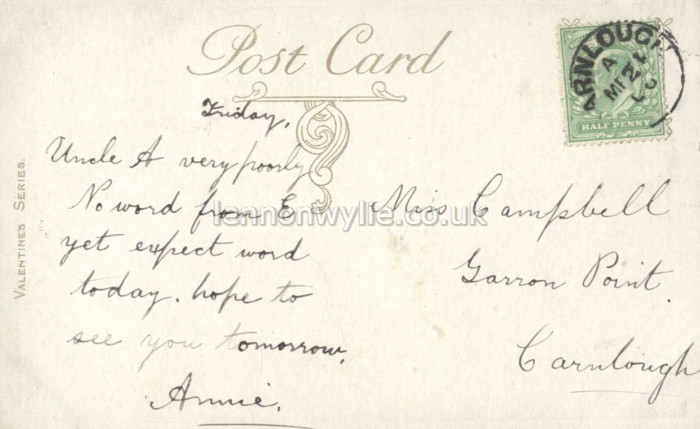 Post Card
Friday,
Uncle A very poorly
No word from E
yet expect word
today. hope to
see you tomorrow.
Annie.
Miss Campbell
Garron Point.
Carnlough
VALENTINES SERIES.
HALF PENNY
ARNLOUGH
A
lennonwylie.co.uk